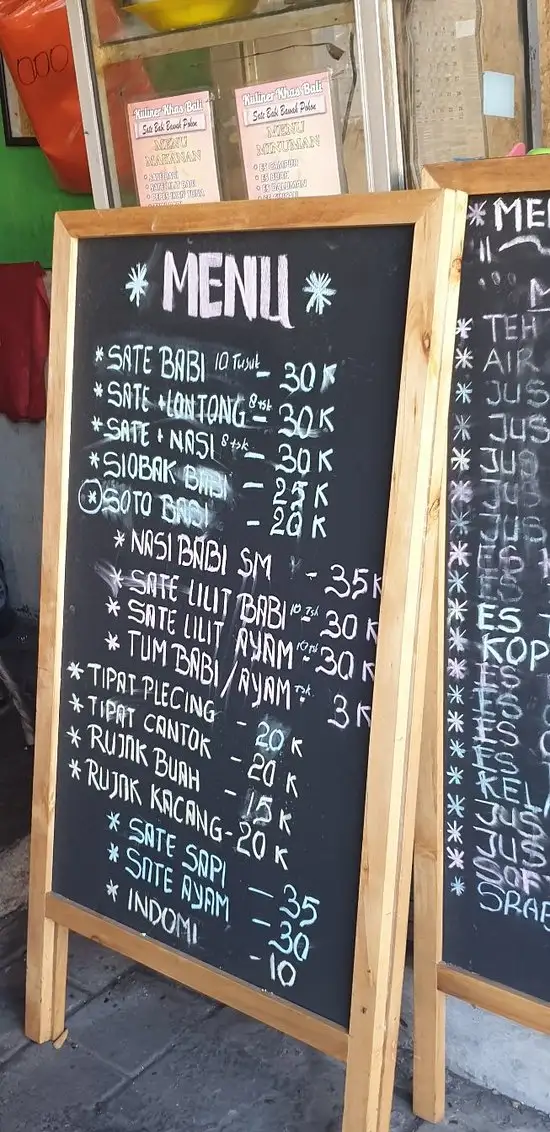 Kuliner Khas Bali
Sate Babi Bawah Pohon
MENU
MAKANAN
Kuliner Khas Bali
Sate Babi Bawah Pohon
MENU
MINUMAN
* MENU *
* SATE BABI 10 Tusuk - 30 K
* SATE + LONTONG 8 tsk - 30 K
* SATE + NASI 8 tsk - 30 K
* SIOBAK BABI - 25 K
* SOTO BABI - 20 K
* NASI BABI SM - 35 K
* SATE LILIT BABI 10 Tsk - 30 K
* SATE LILIT AYAM 10 tsk - 30 K
* TUM BABI / AYAM Tsk - 3 K
* TIPAT PLECING - 20 K
* TIPAT CANTOK - 20 K
* RUJAK BUAH - 15 K
* RUJAK KACANG - 20 K
* SATE SAPI - 35
* SATE AYAM - 30
* INDOMI - 10
* ME
* TEH
* AIR
* JUS
* JUS
* JUS
* JUS
* JUS
* ES
* ES
* ES
* KOP
* ES
* ES
* ES
* ES
* KEL
* JUS
* JUS